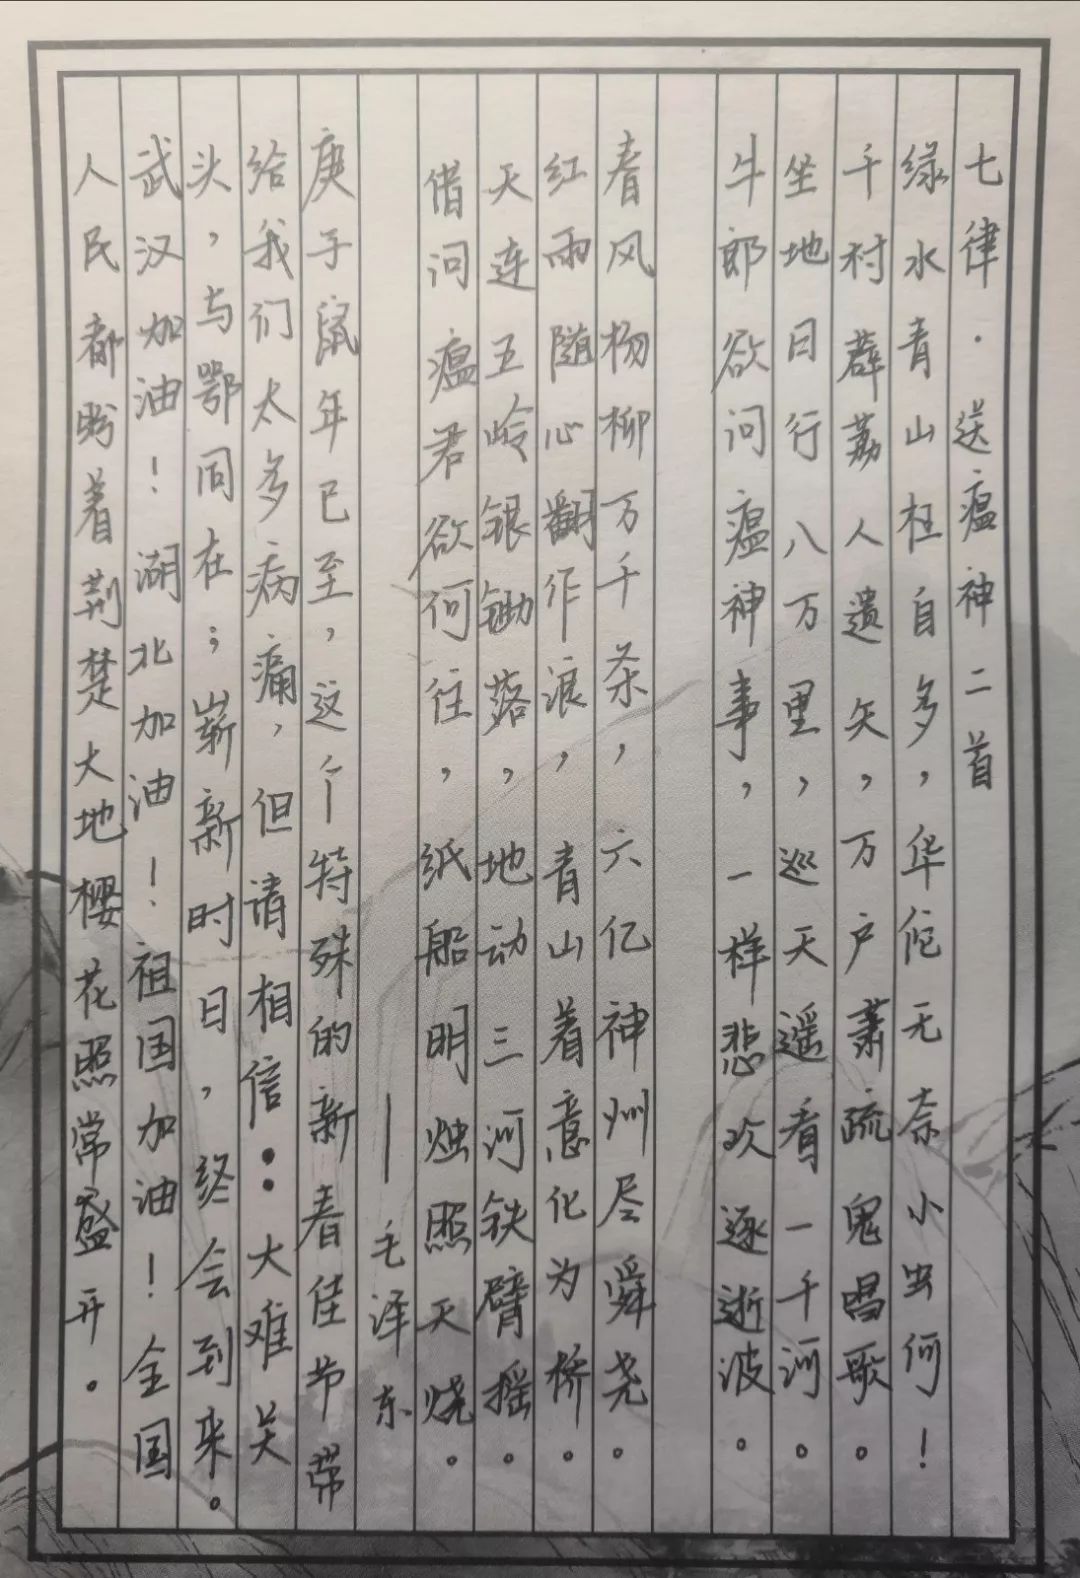 七律·送瘟神二首
绿水青山枉自多，华佗无奈小虫何！
千村薜荔人遗矢，万户萧疏鬼唱歌。
坐地日行八万里，巡天遥看一千河。
牛郎欲问瘟神事，一样悲欢逐逝波。
春风杨柳万千条，六亿神州尽舜尧。
红雨随心翻作浪，青山着意化为桥。
天连五岭银锄落，地动三河铁臂摇。
借问瘟君欲何往，纸船明烛照天烧。
——毛泽东
庚子鼠年已至，这个特殊的新春佳节带
给我们太多病痛，但请相信：大难关
头，与鄂同在；崭新时日，终会到来。
武汉加油！湖北加油！祖国加油！全国
人民都盼着荆楚大地樱花照常盛开。